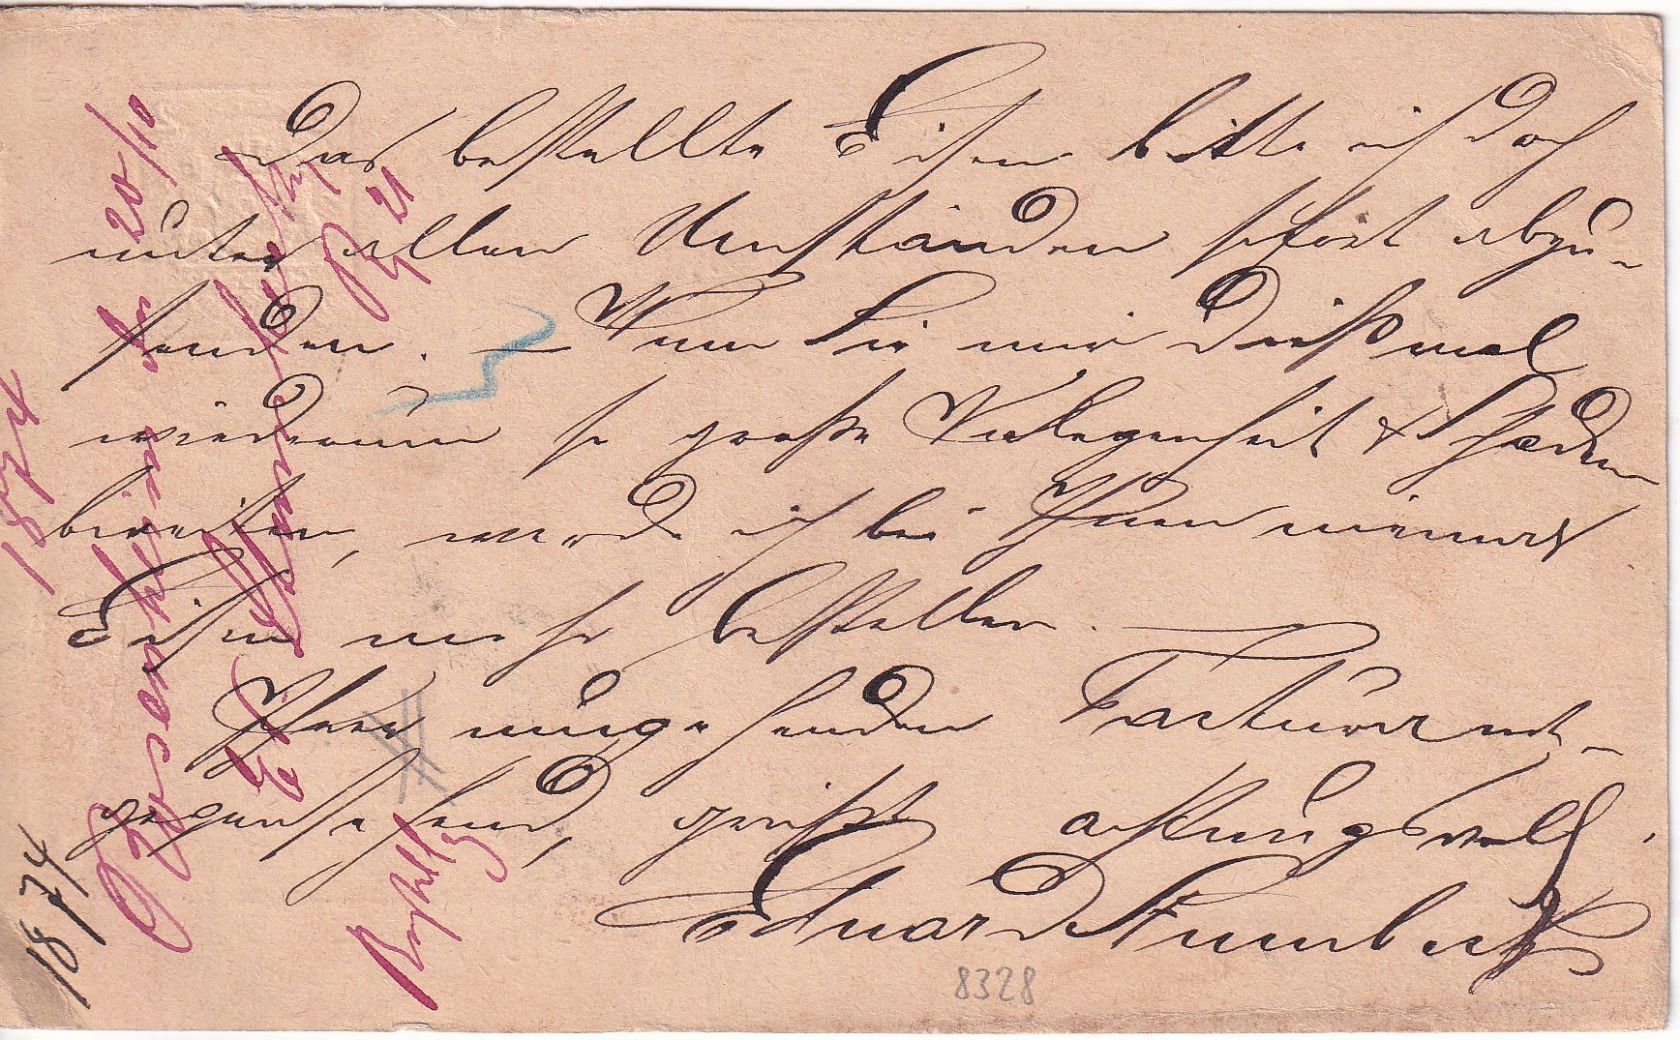 Das bestellte Eisen bitte ich doch
unter allen Umständen sofort abzu-
senden. — Wenn Sie mir diesmal
wiederum so große Verlegenheit & Schaden
bereiten, werde ich bei Ihnen niemals
Eisen mehr bestellen. —
Ihrer umgehenden Factura ent-
gegensehend, grüßt achtungsvoll
Eduard
1874
20/10
21
1874
8328